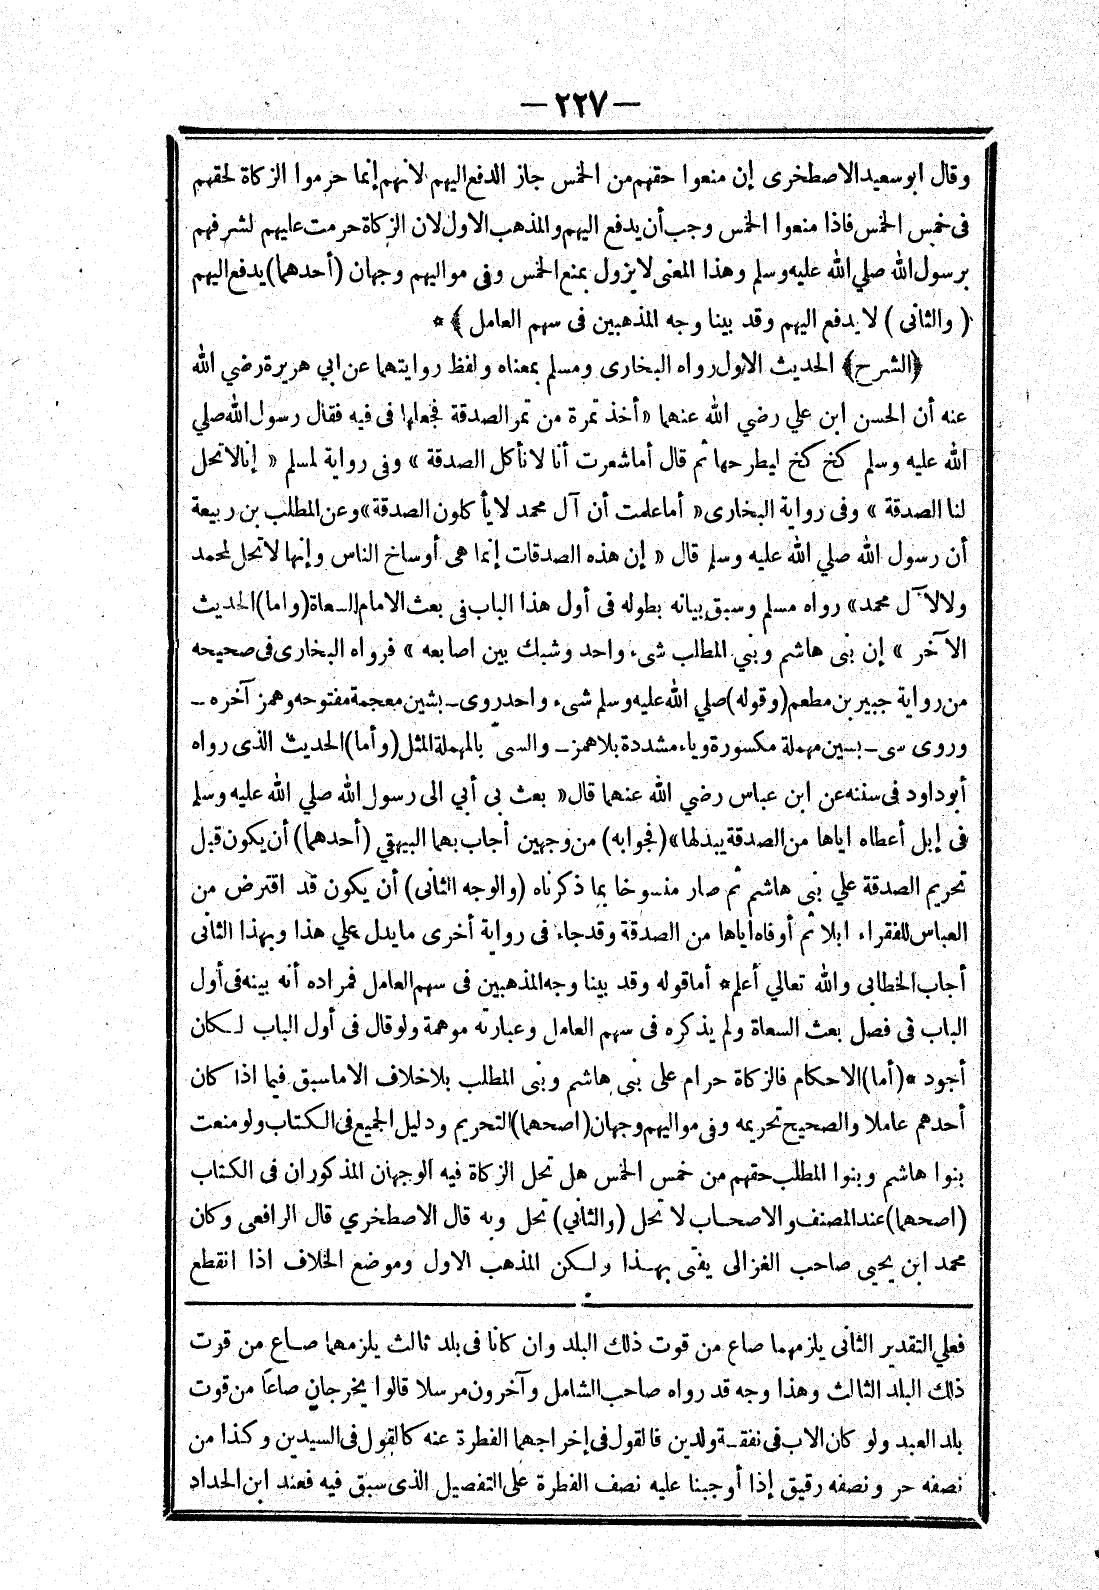 — ٢٢٧ —
وقال ابو سعيد الاصطخرى إن منعوا حقهم من الخمس جاز الدفع اليهم لانهم إنما حرموا الزكاة لحقهم
فى خمس الخمس فاذا منعوا الخمس وجب أن يدفع اليهم والمذهب الاول لان الزكاة حرمت عليهم لشرفهم
برسول الله صلي الله عليه وسلم وهذا المعنى لا يزول بمنع الخمس وفى مواليهم وجهان (أحدهما) يدفع اليهم
( والثانى ) لا يدفع اليهم وقد بينا وجه المذهبين فى سهم العامل ﴾ *
﴿الشرح﴾ الحديث الاول رواه البخارى ومسلم بمعناه ولفظ روايتهما عن ابي هريرة رضي الله
عنه أن الحسن ابن علي رضي الله عنهما « أخذ تمرة من تمر الصدقة فجعلها فى فيه فقال رسول الله صلي
الله عليه وسلم كخ كخ ليطرحها ثم قال أما شعرت أنا لا نأكل الصدقة » وفى رواية لمسلم « إنا لا تحل
لنا الصدقة » وفى رواية البخارى « أما علمت أن آل محمد لا يأكلون الصدقة » وعن المطلب بن ربيعة
أن رسول الله صلي الله عليه وسلم قال « إن هذه الصدقات إنما هى أوساخ الناس وإنها لا تحل لمحمد
ولا لآل محمد » رواه مسلم وسبق بيانه بطوله فى أول هذا الباب فى بعث الامام السعاة (واما) الحديث
الآخر » إن بنى هاشم وبني المطلب شىء واحد وشبك بين اصابعه » فرواه البخارى فى صحيحه
من رواية جبير بن مطعم (وقوله) صلي الله عليه وسلم شىء واحد روى ــ بشين معجمة مفتوحه وهمز آخره ــ
وروى سى ــ بسين مهملة مكسورة وياء مشددة بلا همز ــ والسىّ بالمهملة المثل (وأما) الحديث الذى رواه
أبو داود فى سننه عن ابن عباس رضي الله عنهما قال « بعث بى أبي الى رسول الله صلي الله عليه وسلم
فى إبل أعطاه اياها من الصدقة يبدلها » (فجوابه) من وجهين أجاب بهما البيهقي (أحدهما) أن يكون قبل
تحريم الصدقة علي بنى هاشم ثم صار منسوخا بما ذكرناه (والوجه الثانى) أن يكون قد اقترض من
العباس للفقراء ابلا ثم أوفاه اياها من الصدقة وقد جاء فى رواية أخرى ما يدل علي هذا وبهذا الثانى
أجاب الخطابى والله تعالي أعلم * أما قوله وقد بينا وجه المذهبين فى سهم العامل فمراده أنه بينه فى أول
الباب فى فصل بعث السعاة ولم يذكره فى سهم العامل وعبارته موهمة ولو قال فى أول الباب لـكان
أجود * (أما) الاحكام فالزكاة حرام على بنى هاشم وبنى المطلب بلا خلاف الا ما سبق فيما اذا كان
أحدهم عاملا والصحيح تحريمه وفى مواليهم وجهان (اصحهما) التحريم ودليل الجميع فى الكتاب ولو منعت
بنوا هاشم وبنوا المطلب حقهم من خمس الخمس هل تحل الزكاة فيه الوجهان المذكوران فى الكتاب
(اصحهما) عند المصنف والاصحاب لا تحل (والثاني) تحل وبه قال الاصطخري قال الرافعى وكان
محمد ابن يحيى صاحب الغزالى يفتى بهـذا ولـكن المذهب الاول وموضع الخلاف اذا انقطع
فعلي التقدير الثانى يلزمهما صاع من قوت ذلك البلد وان كانا فى بلد ثالث يلزمهما صاع من قوت
ذلك البلد الثالث وهذا وجه قد رواه صاحب الشامل وآخرون مرسلا قالوا يخرجان صاعا من قوت
بلد العبد ولو كان الاب فى نفقـة ولدين فالقول فى إخراجهما الفطرة عنه كالقول فى السيدين وكذا من
نصفه حر ونصفه رقيق إذا أوجبنا عليه نصف الفطرة على التفصيل الذى سبق فيه فعند ابن الحداد